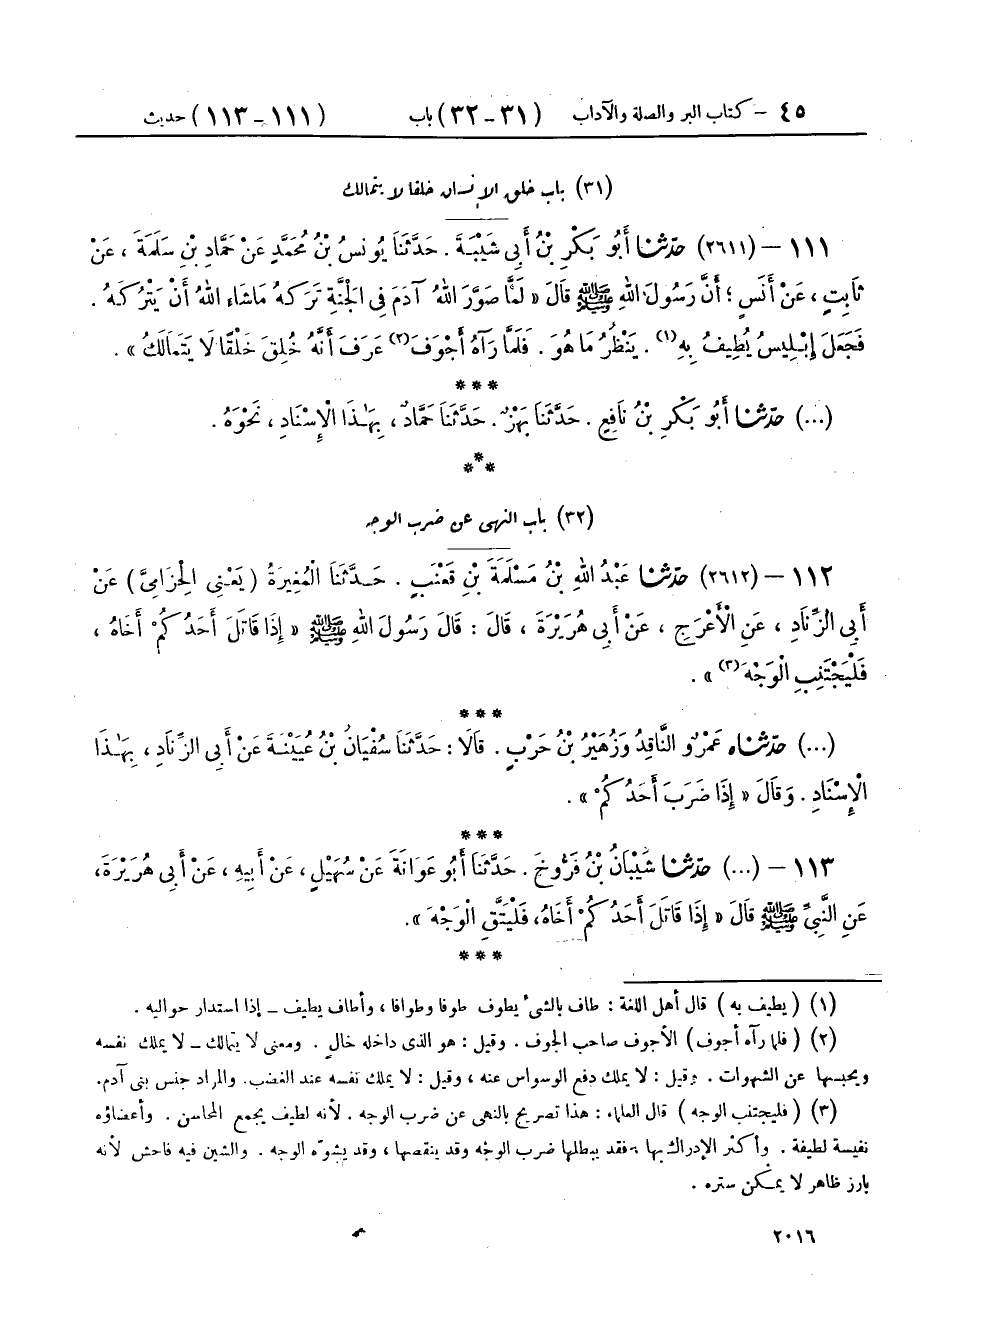 ٤٥ – كتاب البر والصلة والآداب (٣١ – ٣٢) باب (١١١ – ١١٣) حديث
(٣١) باب خلق الإنسان خلقا لا يتمالك
١١١ – (٢٦١١) حدّثنا أَبُو بَكْرِ بْنُ أَبِي شَيْبَةَ . حَدَّثَنَا يُونُسُ بْنُ مُحَمَّدٍ عَنْ حَمَّادِ بْنِ سَلَمَةَ ، عَنْ
ثَابِتٍ ، عَنْ أَنَسٍ ؛ أَنَّ رَسُولَ اللهِ ﷺ قَالَ « لَمَّا صَوَّرَ اللهُ آدَمَ فِي الْجَنَّةِ تَرَكَهُ مَاشَاءَ اللهُ أَنْ يَتْرُكَهُ .
فَجَعَلَ إِبْلِيسُ يُطِيفُ بِهِ(١) . يَنْظُرُ مَا هُوَ . فَلَمَّا رَآهُ أَجْوَفَ(٢) عَرَفَ أَنَّهُ خُلِقَ خَلْقًا لَا يَتَمَالَكُ » .
***
(...) حدّثنا أَبُو بَكْرِ بْنُ نَافِعٍ . حَدَّثَنَا بَهْزٌ . حَدَّثَنَا حَمَّادٌ ، بِهَـٰذَا الْإِسْنَادِ ، نَحْوَهُ .
***
(٣٢) باب النهى عن ضرب الوجه
١١٢ – (٢٦١٢) حدّثنا عَبْدُ اللهِ بْنُ مَسْلَمَةَ بْنِ قَعْنَبٍ . حَدَّثَنَا الْمُغِيرَةُ (يَعْنِي الْحِزَامِيَّ) عَنْ
أَبِي الزِّنَادِ ، عَنِ الْأَعْرَجِ ، عَنْ أَبِي هُرَيْرَةَ ، قَالَ : قَالَ رَسُولُ اللهِ ﷺ « إِذَا قَاتَلَ أَحَدُكُمْ أَخَاهُ ،
فَلْيَجْتَنِبِ الْوَجْهَ(٣) » .
***
(...) حدّثناه عَمْرٌو النَّاقِدُ وَزُهَيْرُ بْنُ حَرْبٍ . قَالَا : حَدَّثَنَا سُفْيَانُ بْنُ عُيَيْنَةَ عَنْ أَبِي الزِّنَادِ ، بِهَـٰذَا
الْإِسْنَادِ . وَقَالَ « إِذَا ضَرَبَ أَحَدُكُمْ » .
***
١١٣ – (...) حدّثنا شَيْبَانُ بْنُ فَرُّوخَ . حَدَّثَنَا أَبُو عَوَانَةَ عَنْ سُهَيْلٍ ، عَنْ أَبِيهِ ، عَنْ أَبِي هُرَيْرَةَ،
عَنِ النَّبِيِّ ﷺ قَالَ « إِذَا قَاتَلَ أَحَدُكُمْ أَخَاهُ، فَلْيَتَّقِ الْوَجْهَ ».
***
(١) (يطيف به) قال أهل اللغة : طاف بالشىء يطوف طوفا وطوافا ، وأطاف يطيف – إذا استدار حواليه .
(٢) (فلما رآه أجوف) الأجوف صاحب الجوف . وقيل : هو الذى داخله خالٍ . ومعنى لا يتمالك – لا يملك نفسه
ويحبسها عن الشهوات . وقيل : لا يملك دفع الوسواس عنه ، وقيل : لا يملك نفسه عند الغضب. والمراد جنس بنى آدم.
(٣) (فليجتنب الوجه) قال العلماء : هذا تصريح بالنهى عن ضرب الوجه . لأنه لطيف يجمع المحاسن . وأعضاؤه
نفيسة لطيفة . وأكثر الإدراك بها ، فقد يبطلها ضرب الوجه وقد ينقصها ، وقد يشوّه الوجه . والشين فيه فاحش لأنه
بارز ظاهر لا يمكن ستره .
٢٠١٦